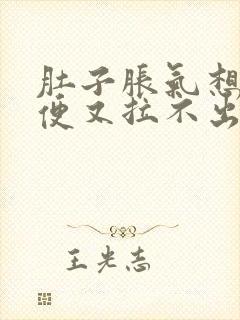 肚子脹氣想
便又拉不出
王光志